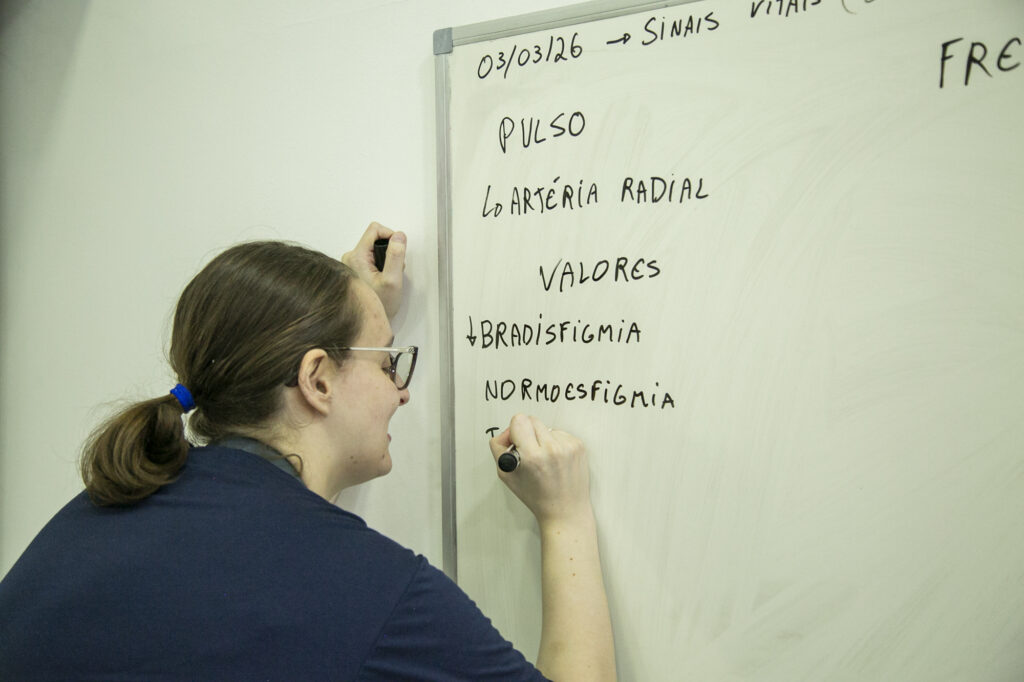 03/03/26 → SINAIS VITAIS (
FRE
PULSO
↳ ARTÉRIA RADIAL
VALORES
↓ BRADISFIGMIA
NORMOESFIGMIA
T